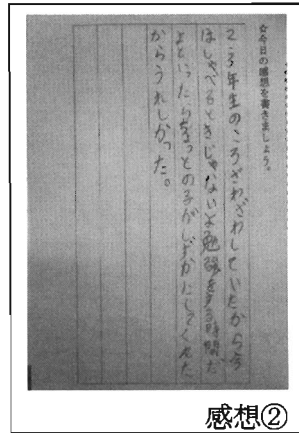 ☆今日の感想を書きましょう。
2、3年生のころざわざわしていたから今
はしゃべるときじゃないよ勉強をする時間だ
よといったらきっとの子がしずかにしてくれた
からうれしかった。
感想②